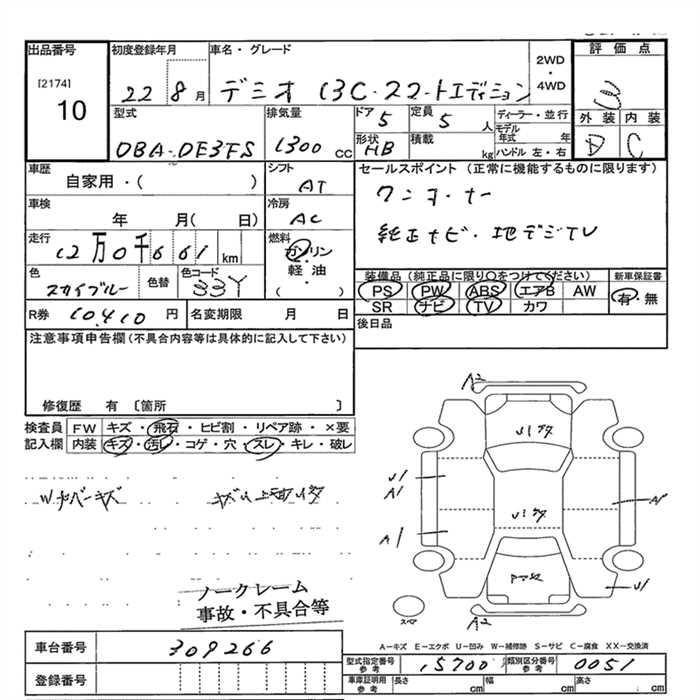 出品番号 初度登録年月 車名・グレード 2WD・4WD 評価点
[2174]
10
22 8月 デミオ 13C-22-トエディション 3
型式 排気量 ドア 定員 ディーラー・並行 外装 内装
DBA-DE3FS 1300cc 5 5人 モデル年式 年 D C
形状 HB 積載 kg ハンドル 左・右
車歴 シフト セールスポイント(正常に機能するものに限ります)
自家用・( ) AT ワンオーナー
車検 冷房
年 月( 日) AC 純正ナビ・地デジTV
走行 燃料
12万0千661km ガソリン・軽油・( )
色 色替 色コード 装備品(純正品に限り○をつけてください) 新車保証書
スカイブルー 33Y PS PW ABS エアB AW 有・無
SR ナビ TV カワ
R券 10,410円 名変期限 月 日 後日品
注意事項申告欄(不具合内容等は具体的に記入して下さい)
修復歴 有 〔箇所 〕
検査員 FW キズ・飛石・ヒビ割・リペア跡・×要
記入欄 内装 キズ・汚レ・コゲ・穴・スレ・キレ・破レ
A2
U1
A1
A1
A1
U1
A2
スペア
ノークレーム
事故・不具合等
A-キズ E-エクボ U-凹み W-補修跡 S-サビ C-腐食 XX-交換済
車台番号 309266
登録番号
型式指定番号 参考 15700 類別区分番号 参考 0051
車庫証明用 参考 長さ cm 幅 cm 高さ cm